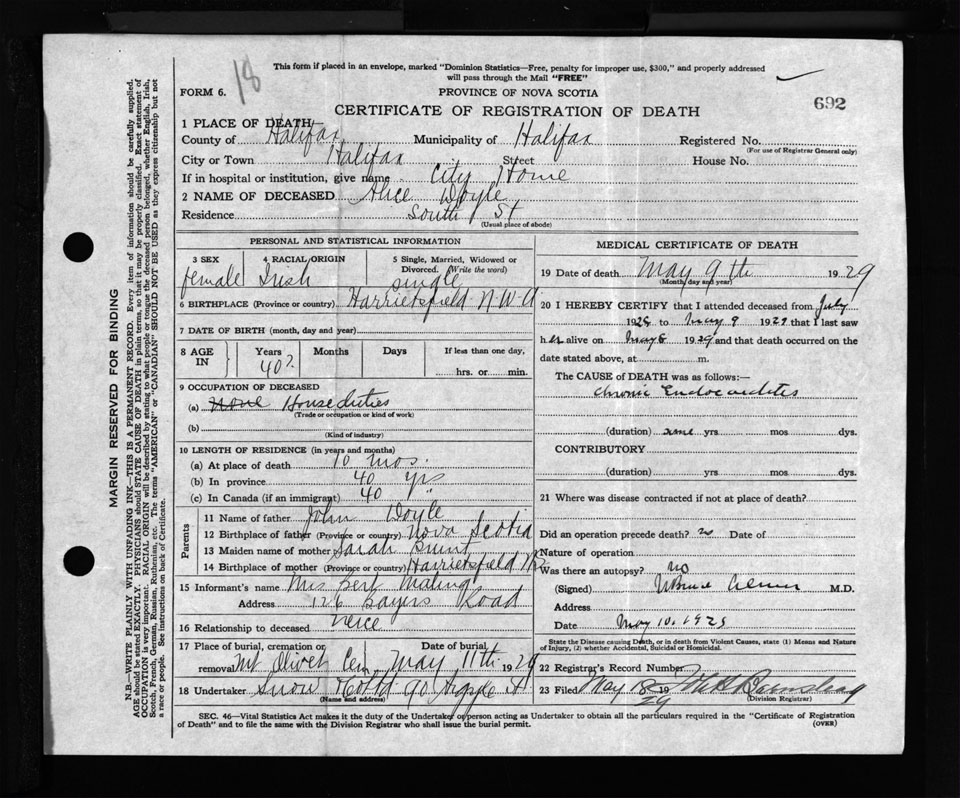 18
This form if placed in an envelope, marked "Dominion Statistics—Free, penalty for improper use, $300," and properly addressed
will pass through the Mail "FREE"
FORM 6.
PROVINCE OF NOVA SCOTIA
692
CERTIFICATE OF REGISTRATION OF DEATH
1 PLACE OF DEATH
County of Halifax Municipality of Halifax Registered No.
(For use of Registrar General only)
City or Town Halifax Street House No.
If in hospital or institution, give name City Home
2 NAME OF DECEASED Alice Doyle
Residence South St
(Usual place of abode)
PERSONAL AND STATISTICAL INFORMATION
3 SEX 4 RACIAL ORIGIN 5 Single, Married, Widowed or
Divorced. (Write the word)
female Irish single
6 BIRTHPLACE (Province or country) Harrietsfield N.W.A
7 DATE OF BIRTH (month, day and year)
8 AGE IN Years Months Days If less than one day,
40? hrs. or min.
9 OCCUPATION OF DECEASED
(a) none House duties
(Trade or occupation or kind of work)
(b)
(Kind of industry)
10 LENGTH OF RESIDENCE (in years and months)
(a) At place of death 10 mos.
(b) In province 40 yrs
(c) In Canada (if an immigrant) 40 "
Parents
11 Name of father John Doyle
12 Birthplace of father (Province or country) Nova Scotia
13 Maiden name of mother Sarah Brunt
14 Birthplace of mother (Province or country) Harrietsfield
15 Informant's name Mrs Bert
Address 126 Bayers Road
16 Relationship to deceased neice
17 Place of burial, cremation or Date of burial
removal Mt Olivet Cem. May 11th 1929
18 Undertaker Snow 90 Argyle St.
(Name and address)
MEDICAL CERTIFICATE OF DEATH
19 Date of death May 9th 1929
(Month, day and year)
20 I HEREBY CERTIFY that I attended deceased from July
1928 to May 9 1929 that I last saw
her alive on May 8 1929 and that death occurred on the
date stated above, at m.
The CAUSE of DEATH was as follows:—
Chronic Endocarditis
(duration) some yrs mos dys.
CONTRIBUTORY
(duration) yrs mos dys.
21 Where was disease contracted if not at place of death?
Did an operation precede death? no Date of
Nature of operation
Was there an autopsy? no
(Signed) M.D.
Address
Date May 10, 1929
State the Disease causing Death, or in death from Violent Causes, state (1) Means and Nature
of Injury, (2) whether Accidental, Suicidal or Homicidal.
22 Registrar's Record Number
23 Filed May 18 1929
(Division Registrar)
SEC. 46—Vital Statistics Act makes it the duty of the Undertaker or person acting as Undertaker to obtain all the particulars required in the "Certificate of Registration
of Death" and to file the same with the Division Registrar who shall issue the burial permit.
(OVER)
MARGIN RESERVED FOR BINDING
N.B.—WRITE PLAINLY WITH UNFADING INK—THIS IS A PERMANENT RECORD. Every item of information should be carefully supplied.
AGE should be stated EXACTLY. PHYSICIANS should STATE CAUSE OF DEATH in plain terms, so that it may be properly classified. Exact statement of
OCCUPATION is very important. RACIAL ORIGIN will be described by stating to what people or tongue the deceased person belonged, whether English, Irish,
Scotch, French, German, Russian, Ruthenian, etc. The terms "AMERICAN" or "CANADIAN" SHOULD NOT BE USED as they express citizenship but not
a race or people. See instructions on back of Certificate.